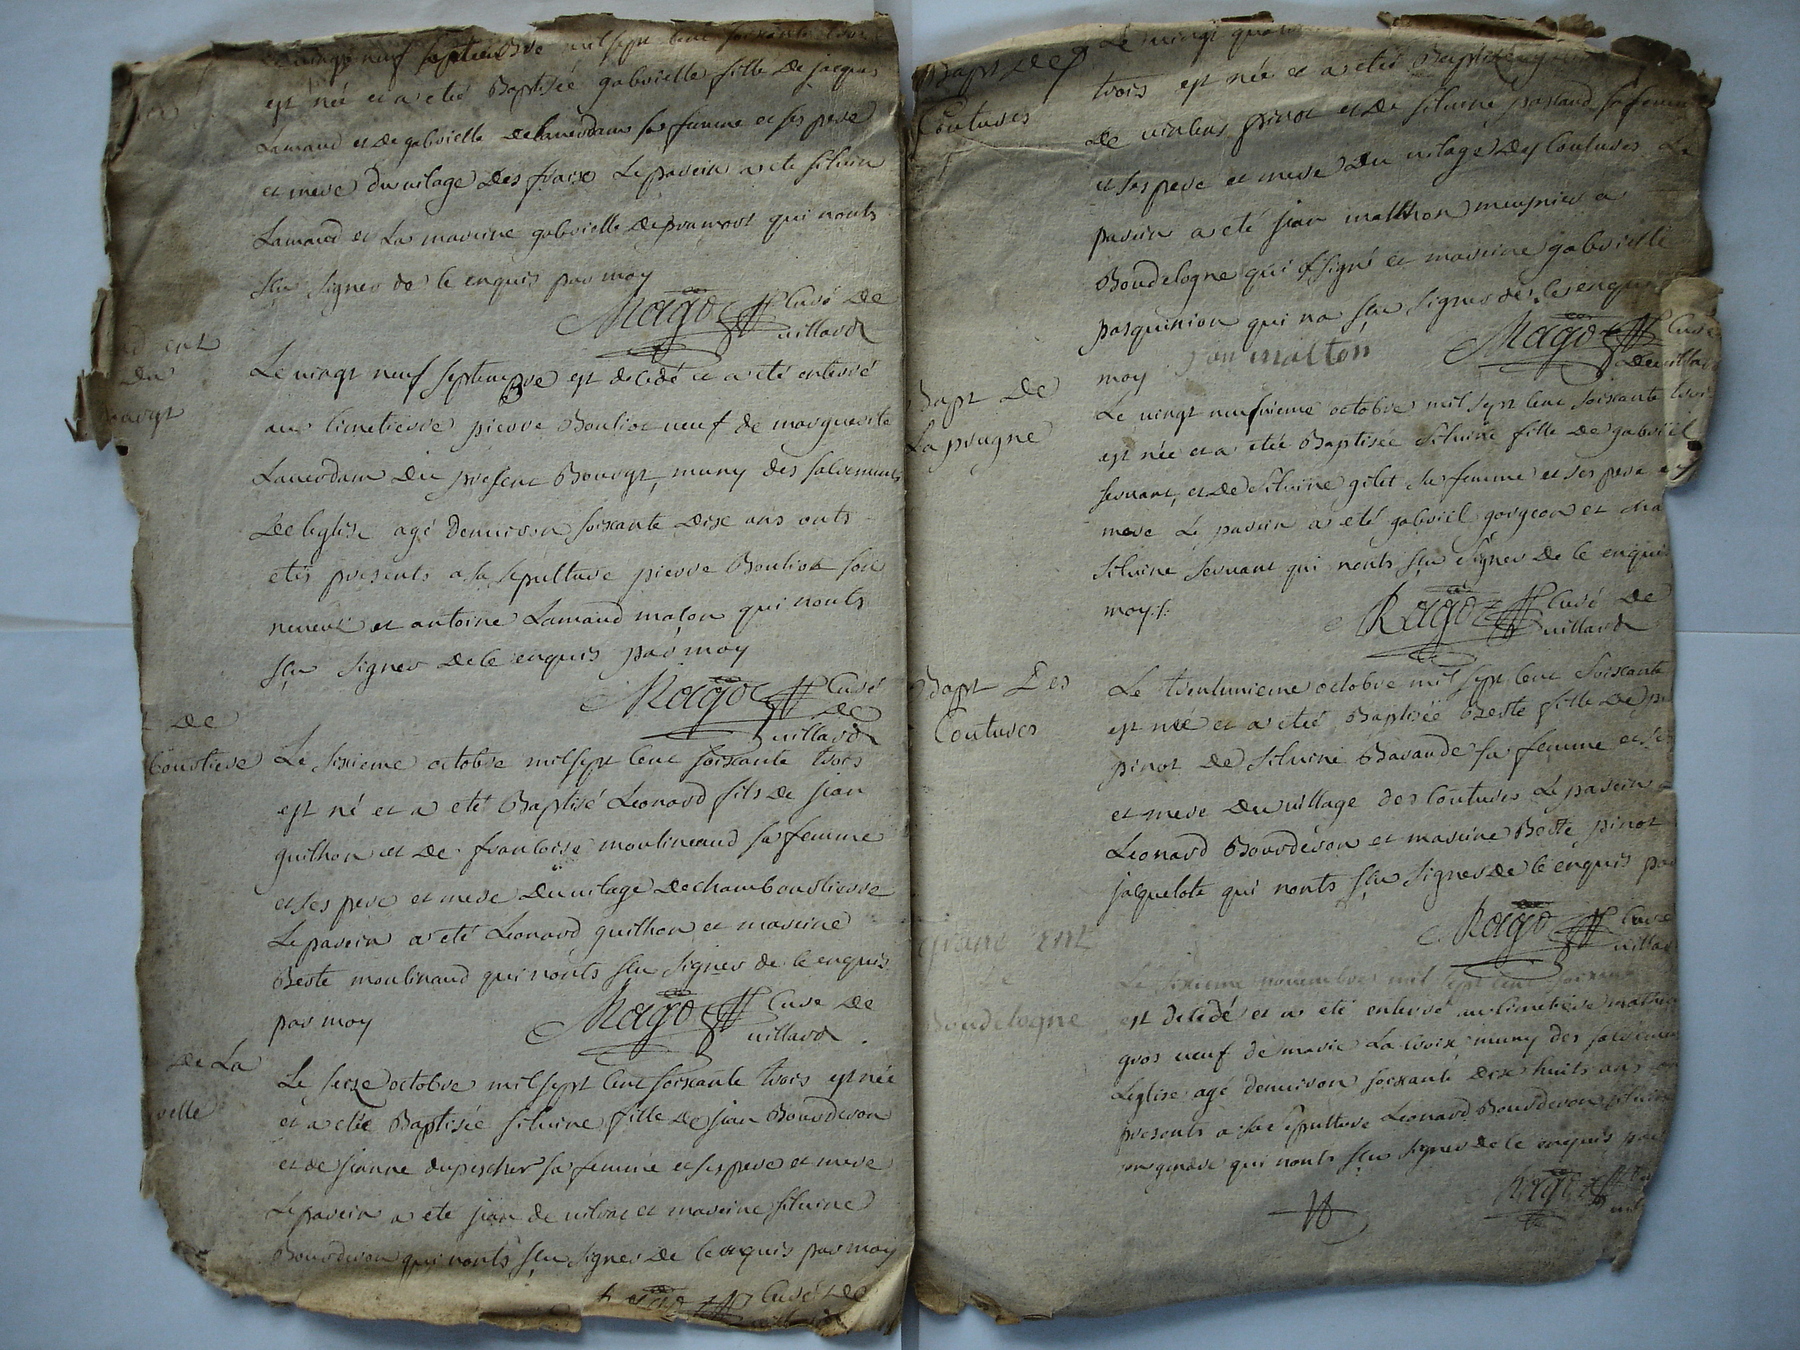 Le vingt neuf septembre mil sept cent soixante trois
est née et a eteé Baptiseé gabrielle fille de jacques
Lamaud et de gabrielle delaverdam sa femme et ses pere
et mere du vilage des fraix Le parein a ete silvin
Lamaud et La mareine gabrielle depramort qui nonts
sçu signer de ce enquis par moy
Ragot Curé de
villard
Le vingt neuf septempre est decedé et a eté enterré
au cimetierre pierre Bouliot veuf de marguerite
Laverdam du present Bourgt, muny des sacrements
de leglise agé denviron soixante dix ans onts
etés presents a sa sepulture pierre Bouliot son
neveux et antoine Lamaud maçon qui nonts
sçu signer de ce enquis par moy
Ragot Curé
de
villard
de
boutiere
Le sixieme octobre mil sept cent soixante trois
est né et a eté Baptisé Leonard fils de jean
guilhon et de francoise moulineaud sa femme
et ses pere et mere du vilage de chamboutierre
Le parein a eté Leonard guilhon et mareine
Beste moulinaud qui nonts sçu signer de ce enquis
par moy
Ragot Curé de
villard
de La
velle
Le seize octobre mil sept cent soixante trois est née
et a eteé Baptiseé silvine fille de jean Bourderon
et de jeanne dupescher sa femme et ses pere et mere
Le parein a ete jean de vilvat et mareine silvine
Bourderon qui nonts sçu signer de ce enquis par moy
Ragot Curé de
villard
Bapt des
Coutures
Le vingt quatre
trois est née et a eteé Baptiseé
de pinot et de silvine pastaud sa femme
et ses pere et mere du vilage des Coutures Le
parein a eté jean malthon meusnier a
Boudelogne qui a signé et mareine gabrielle
pasquinion qui na sçu signer de ce enquis
moy
jean malton
Ragot Curé
de villard
Bapt de
La prugne
Le vingt neufvieme octobre mil sept cent soixante trois
est née et a eteé Baptiseé silvine fille de gabriel
servant, et de silvine gilet sa femme et ses pere et
mere Le parein a eté gabriel gorgeon et ma
silvine servant qui nonts sçu signer de ce enquis
moy ./.
Ragot Curé de
villard
Bapt Des
Coutures
Le trentunieme octobre mil sept cent soixante
est neé et a eteé Baptiseé Beste fille de
pinot de silvine Baraude sa femme et ses
et mere du village des Coutures Le parein a
Leonard Bourderon et mareine Beste pinot
jaquelote qui nonts sçu signer de ce enquis par
Ragot Curé
villard
ent
de
Boudelogne
Le sixieme novembre mil sept cent soixante
est decedé et a eté enterré au cimetiere mathieu
gros veuf de marie La croix muny des sacrements
Leglise agé denviron soixante dix huits ans
presents a sa sepulture Leonard Bourderon silvin
son gendre qui nonts sçu signer de ce enquis par
Ragot